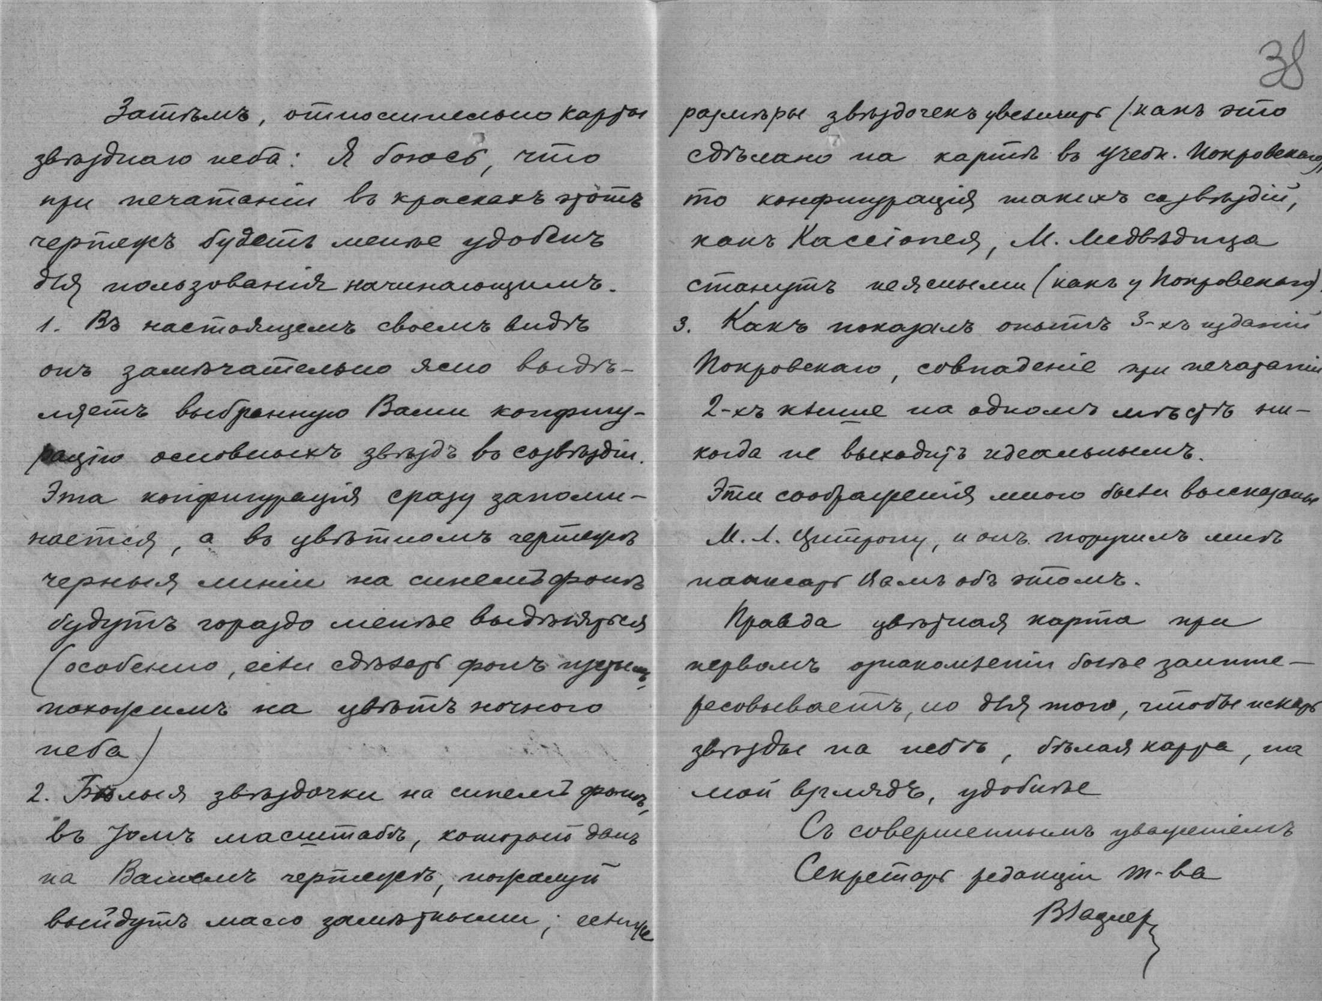 38
Затѣмъ, относительно карты
звѣзднаго неба: Я боюсь, что
при печатаніи въ краскахъ этотъ
чертежъ будетъ менѣе удобенъ
для пользованія начинающимъ.
1. Въ настоящемъ своемъ видѣ
онъ замѣчательно ясно выдѣ-
ляетъ выбранную Вами конфигу-
рацію основныхъ звѣздъ въ созвѣздіи.
Эта конфигурація сразу запоми-
нается, а въ цвѣтномъ чертежѣ
черныя линіи на синемъ фонѣ
будутъ гораздо менѣе выдѣляться
(особенно, если сдѣлать фонъ
похожимъ на цвѣтъ ночного
неба)
2. Бѣлыя звѣздочки на синемъ фонѣ,
въ томъ масштабѣ, который данъ
на Вашемъ чертежѣ, пожалуй
выйдутъ мало замѣтными; если же
размѣры звѣздочекъ увеличить (какъ это
сдѣлано на картѣ въ учебн. Покровскаго),
то конфигурація такихъ созвѣздій,
какъ Кассіопея, М. Медвѣдица
станутъ неясными (какъ у Покровскаго).
3. Какъ показалъ опытъ 3-хъ изданій
Покровскаго, совпаденіе при печатаніи
2-хъ клише на одномъ мѣстѣ ни-
когда не выходитъ идеальнымъ.
Эти соображенія мною были высказаны
М. Л. Цитрону, и онъ поручилъ мнѣ
написать Вамъ объ этомъ.
Правда цвѣтная карта при
первомъ ознакомленіи болѣе заинте-
ресовываетъ, но для того, чтобы искать
звѣзды на небѣ, бѣлая карта, на
мой взглядъ, удобнѣе
Съ совершеннымъ уваженіемъ
Секретарь редакціи т-ва